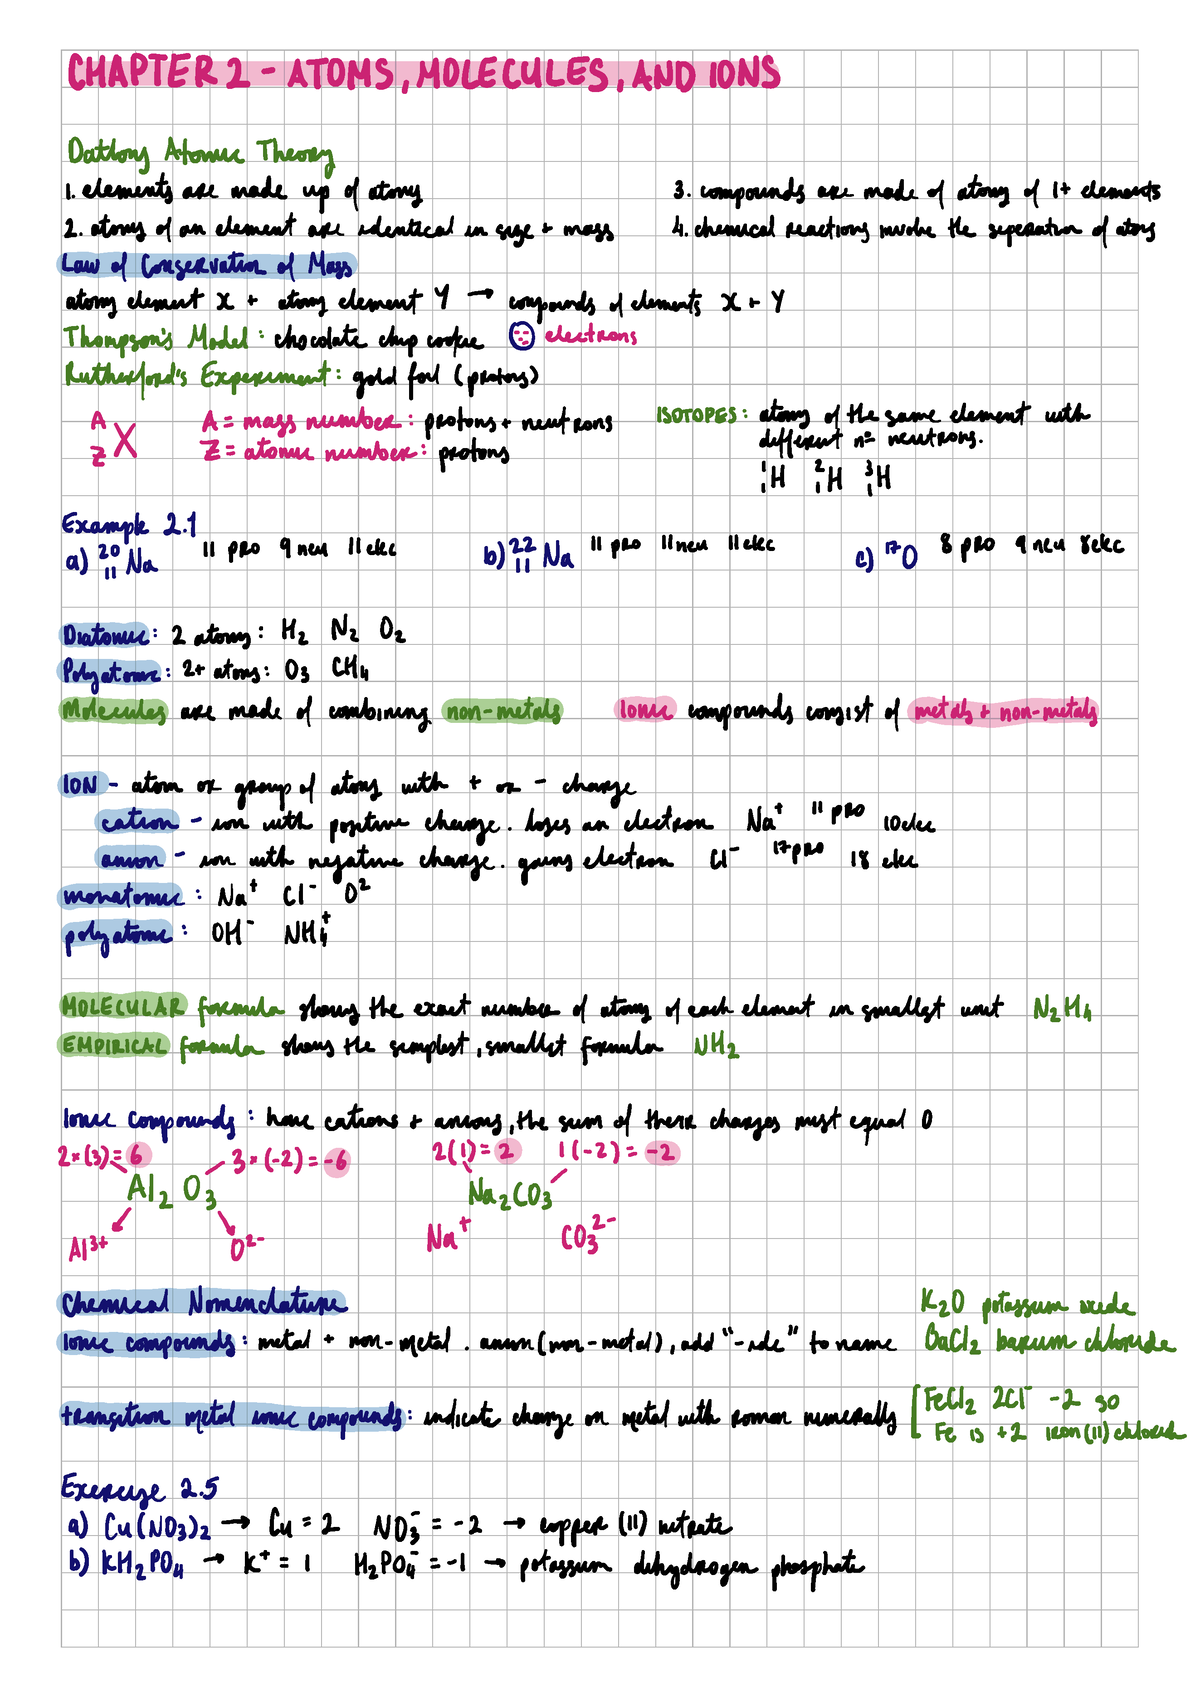 CHAPTER 2 - ATOMS, MOLECULES, AND IONS
Daltons Atomic Theory
1. elements are made up of atoms
3. compounds are made of atoms of 1+ elements
2. atoms of an element are identical in size + mass
4. chemical reactions involve the seperation of atoms
Law of Conservation of Mass
atoms element X + atoms element Y → compounds of elements X + Y
Thompson's Model: chocolate chip cookie electrons
Rutherford's Experiment: gold foil (protons)
A Z X
A = mass number: protons + neutrons
Z = atomic number: protons
ISOTOPES: atoms of the same element with
different nº neutrons.
¹₁H ²₁H ³₁H
Example 2.1
a) ²⁰₁₁Na 11 pro 9 neu 11 elec b) ²²₁₁Na 11 pro 11 neu 11 elec c) ¹⁷O 8 pro 9 neu 8 elec
Diatomic: 2 atoms: H₂ N₂ O₂
Polyatomic: 2+ atoms: O₃ CH₄
Molecules are made of combining non-metals Ionic compounds consist of metals + non-metals
ION - atom or group of atoms with + or - charge
cation - ion with positive charge. loses an electron Na⁺ 11 pro 10 elec
anion - ion with negative charge. gains electron Cl⁻ 17 pro 18 elec
monatomic: Na⁺ Cl⁻ O²
polyatomic: OH⁻ NH₄⁺
MOLECULAR formula shows the exact number of atoms of each element in smallest unit N₂H₄
EMPIRICAL formula shows the simplest, smallest formula NH₂
Ionic Compounds: have cations + anions, the sum of there charges must equal 0
2×(3)= 6 3×(-2)= -6 2(1)= 2 1(-2)= -2
Al₂O₃ Na₂CO₃
Al³⁺ O²⁻ Na⁺ CO₃²⁻
Chemical Nomenclature
K₂O potassium oxide
Ionic compounds: metal + non-metal. anion (non-metal), add "-ide" to name
BaCl₂ barium chloride
transition metal ionic compounds: indicate charge on metal with roman numerals
FeCl₂ 2Cl⁻ -2 so
Fe is +2 iron (II) chloride
Exercise 2.5
a) Cu(NO₃)₂ → Cu = 2 NO₃⁻ = -2 → copper (II) nitrate
b) KH₂PO₄ → K⁺ = 1 H₂PO₄⁻ = -1 → potassium dihydrogen phosphate